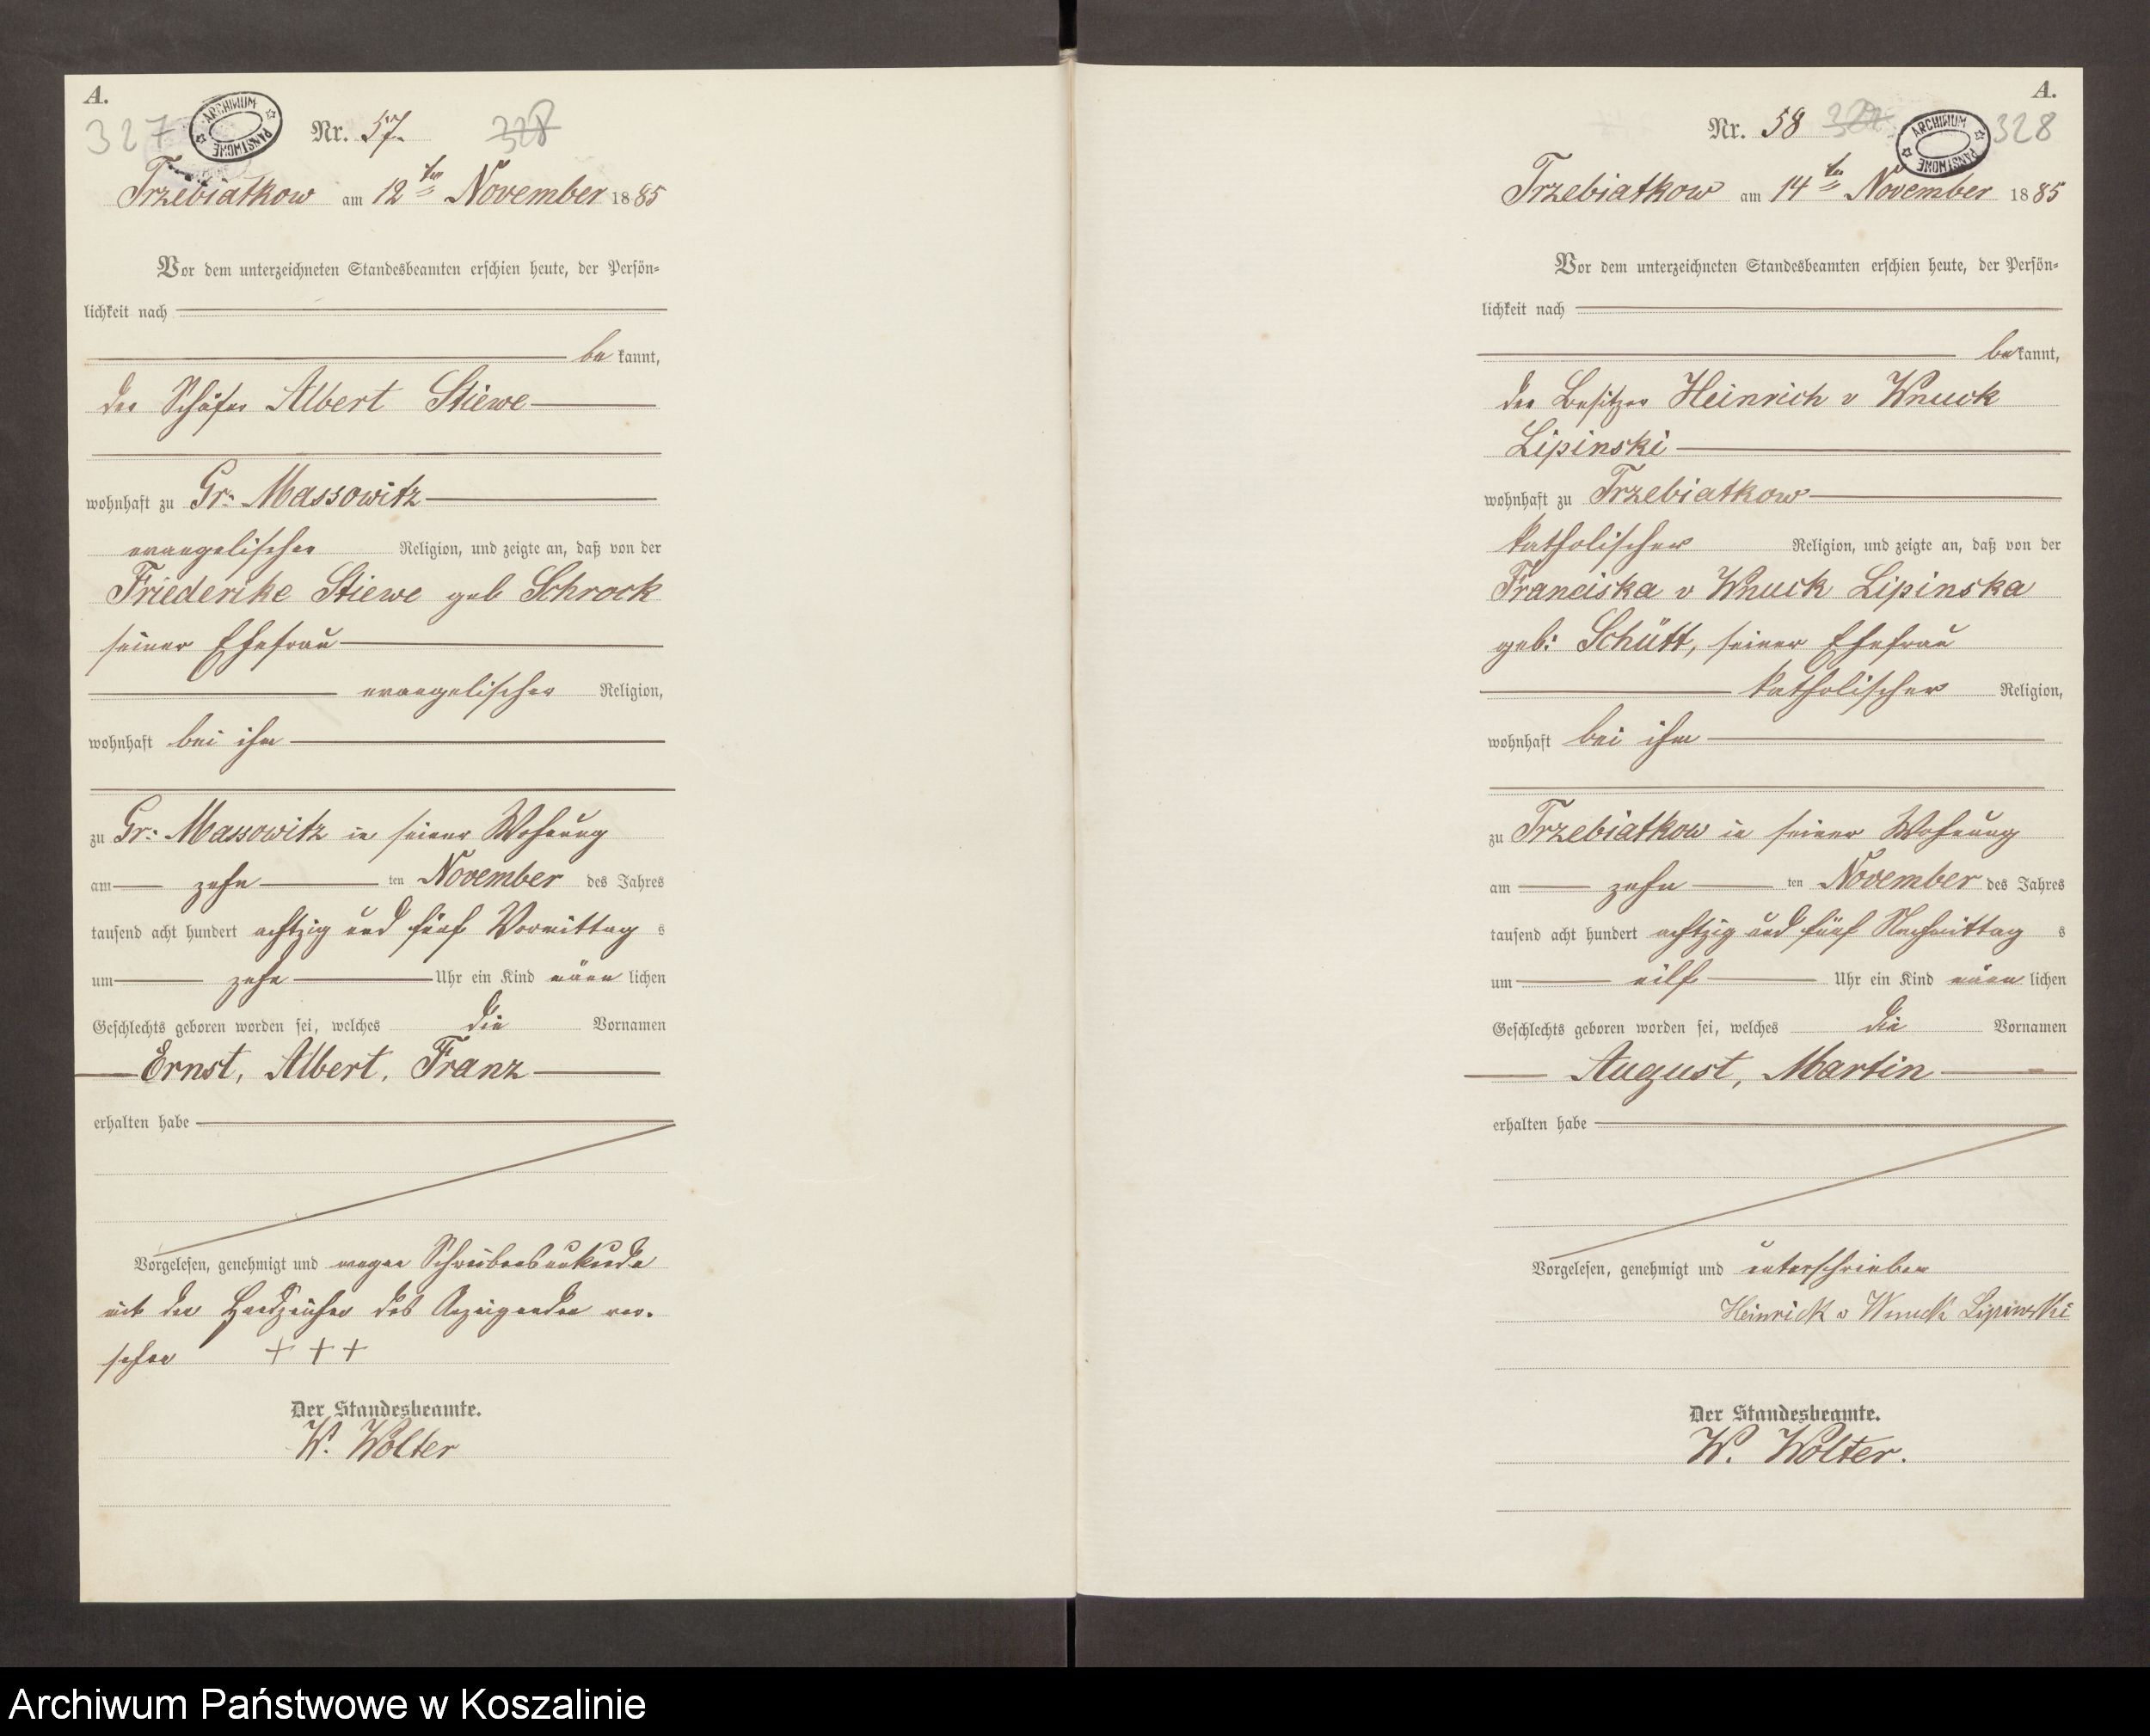 A.
327
ARCHIWUM PAŃSTWOWE
Nr. 57.
328
Trzebiatkow am 12ten November 1885
Vor dem unterzeichneten Standesbeamten erschien heute, der Persön-
lichkeit nach
be kannt,
der Schäfer Albert Stiewe
wohnhaft zu Gr. Massowitz
evangelischer Religion, und zeigte an, daß von der
Friederike Stiewe geb Schrock
seiner Ehefrau
evangelischer Religion,
wohnhaft bei ihm
zu Gr. Massowitz in seiner Wohnung
am zehn ten November des Jahres
tausend acht hundert achtzig und fünf Vormittag s
um zehn Uhr ein Kind männ lichen
Geschlechts geboren worden sei, welches die Vornamen
Ernst, Albert, Franz
erhalten habe
Vorgelesen, genehmigt und wegen Schreibensunkunde
mit den Handzeichen des Anzeigenden ver-
sehen +++
Der Standesbeamte.
W. Wolter
A.
Nr. 58
ARCHIWUM PAŃSTWOWE
328
Trzebiatkow am 14ten November 1885
Vor dem unterzeichneten Standesbeamten erschien heute, der Persön-
lichkeit nach
be kannt,
der Besitzer Heinrich v Wnuck
Lipinski
wohnhaft zu Trzebiatkow
katholischer Religion, und zeigte an, daß von der
Franciska v Wnuck Lipinska
geb: Schütt, seiner Ehefrau
katholischer Religion,
wohnhaft bei ihm
zu Trzebiatkow in seiner Wohnung
am zehn ten November des Jahres
tausend acht hundert achtzig und fünf Nachmittag s
um eilf Uhr ein Kind männ lichen
Geschlechts geboren worden sei, welches die Vornamen
August, Martin
erhalten habe
Vorgelesen, genehmigt und unterschrieben
Heinrich v Wnuck Lipinski
Der Standesbeamte.
W. Wolter.
Archiwum Państwowe w Koszalinie